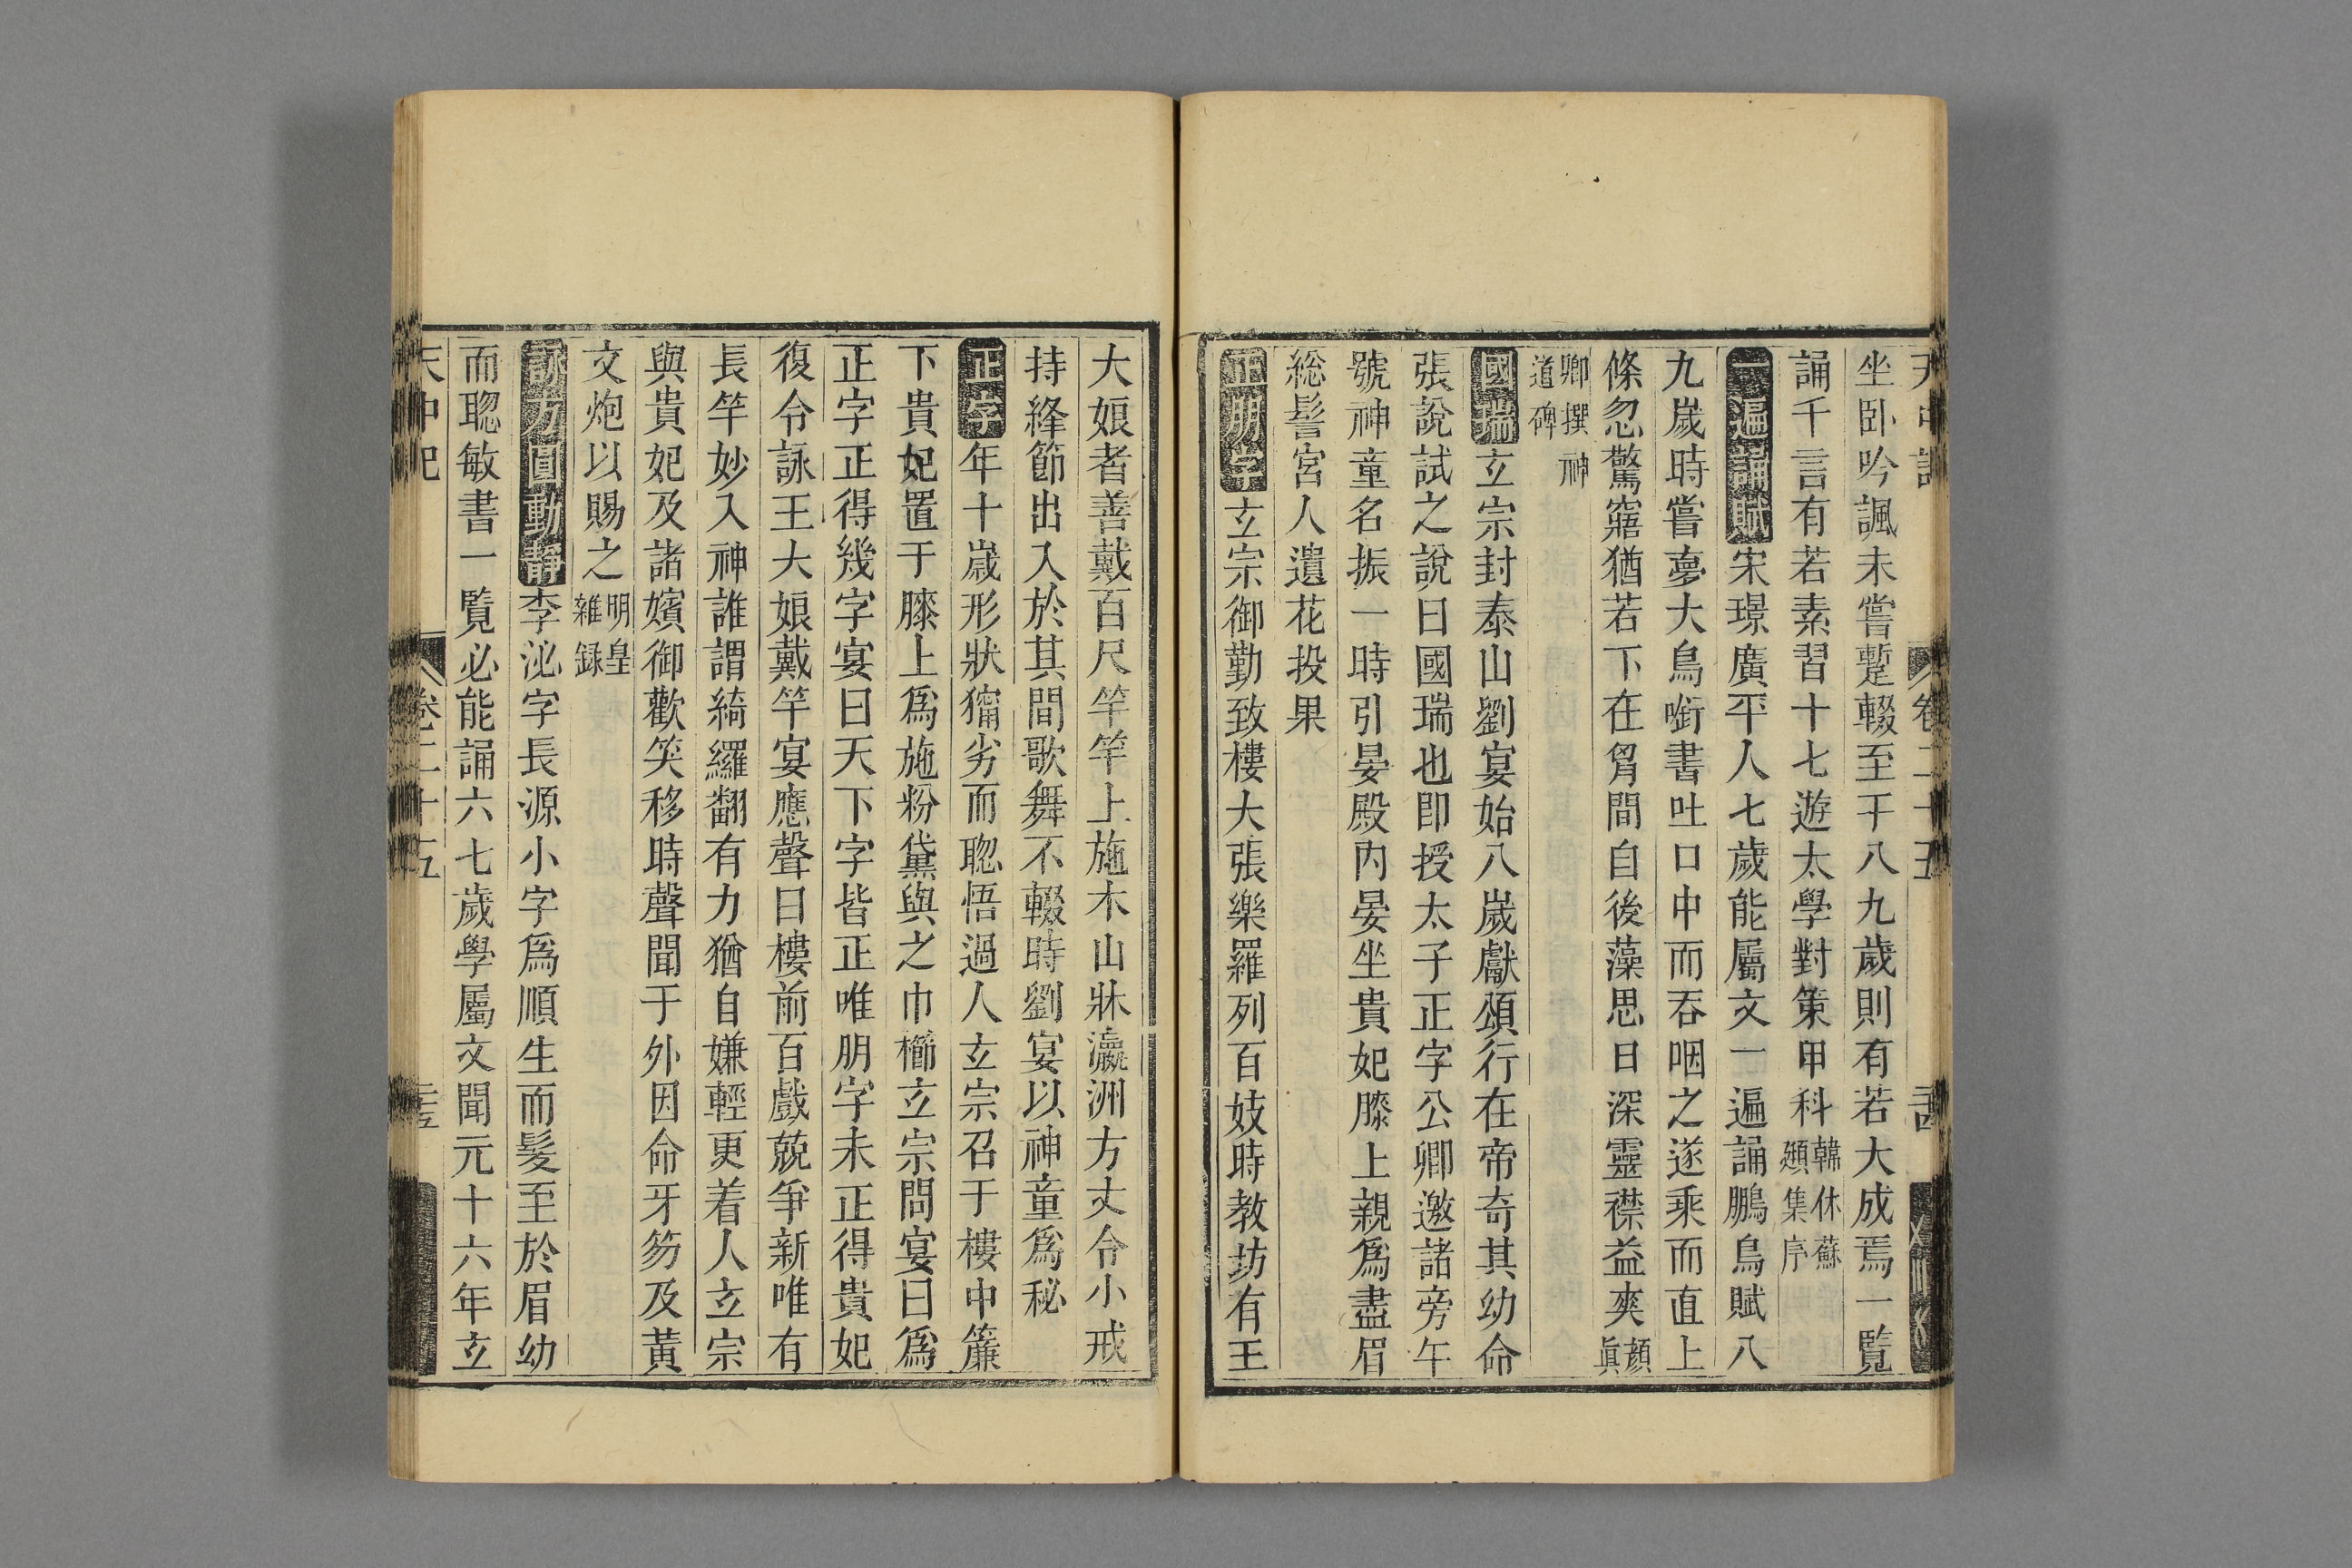 天中記 卷二十五
坐卧吟諷未嘗蹔輟至于八九歲則有若大成焉一覧
誦千言有若素習十七遊太學對策甲科韓休蘇頲集序
一遍誦賦宋璟廣平人七歲能屬文一遍誦鵬鳥賦八
九歲時嘗夢大鳥銜書吐口中而吞咽之遂乘而直上
倐忽驚寤猶若下在胷間自後藻思日深靈襟益爽顔眞
卿撰神道碑
國瑞玄宗封泰山劉宴始八歲獻頌行在帝奇其幼命
張說試之說日國瑞也卽授太子正字公卿邀諸旁午
號神童名振一時引晏殿內晏坐貴妃膝上親爲畫眉
総髻宮人遺花投果
正朋字玄宗御勤致樓大張樂羅列百妓時教坊有王
大娘者善戴百尺竿竿上施木山牀瀛洲方丈令小戒
持絳節出入於其間歌舞不輟時劉宴以神童爲秘
正字年十歲形狀獰劣而聦悟過人玄宗召于樓中簾
下貴妃置于膝上爲施粉黛與之巾櫛玄宗問宴曰爲
正字正得幾字宴曰天下字皆正唯朋字未正得貴妃
復令詠王大娘戴竿宴應聲曰樓前百戲兢爭新唯有
長竿妙入神誰謂綺羅翻有力猶自嫌輕更着人玄宗
與貴妃及諸嬪御歡笑移時聲聞于外因命牙笏及黃
文炮以賜之明皇雜録
詠方圓動靜李泌字長源小字爲順生而髮至於眉幼
而聦敏書一覧必能誦六七歲學屬文聞元十六年玄
天中記 卷二十五